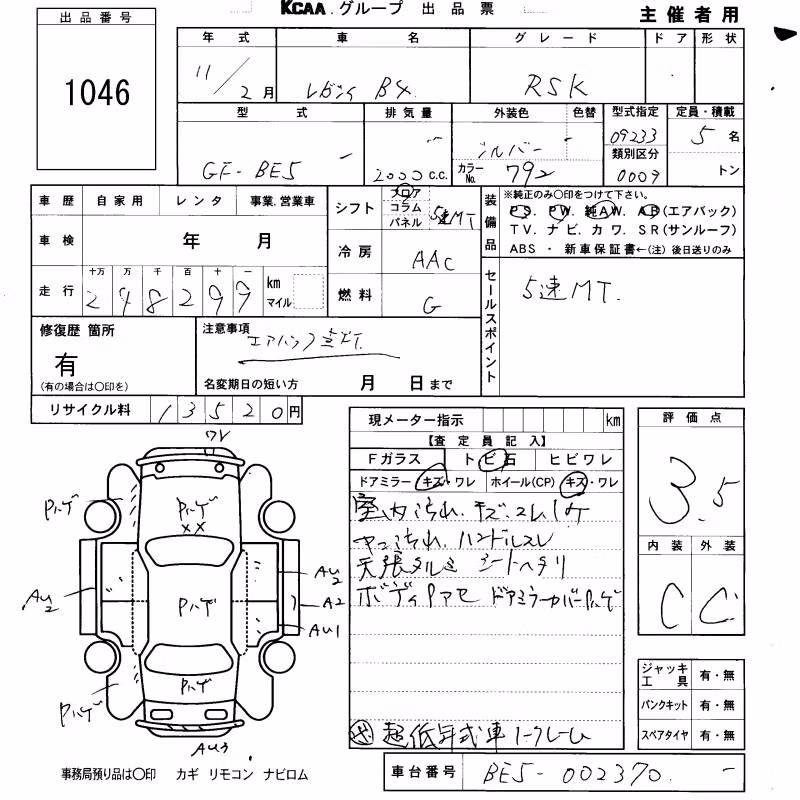 KCAA.グループ 出品票
主催者用
出品番号
1046
年式 車名 グレード ドア 形状
11/2月 レガシィ B4 RSK
型式 排気量 外装色 色替 型式指定 定員・積載
GF-BE5 2000c.c. シルバー カラーNo. 792 09233 5名
類別区分
0009 トン
車歴 自家用 レンタ 事業.営業車
シフト フロア コラム パネル 5速MT
装備品
※純正のみ○印をつけて下さい。
PS. PW. 純AW. AB(エアバック)
TV. ナビ. カワ. SR(サンルーフ)
ABS ・ 新車保証書←(注)後日送りのみ
車検 年 月
冷房 AAC
走行 十万 万 千 百 十 一 km マイル
248299
燃料 G
セールスポイント
5速MT.
修復歴 箇所
有
(有の場合は○印を)
注意事項
エアバック点灯.
名変期日の短い方 月 日まで
リサイクル料 13520円
現メーター指示 km
【査定員記入】
Fガラス トビ石 ヒビワレ
ドアミラー キズ・ワレ ホイール(CP) キズ・ワレ
室内汚れ.キズ.コゲ
ヤニ汚れ.ハンドルスレ
天張タルミ シートヘタリ
ボディPアセ ドアミラーカバーPハゲ
超低年式車ノークレーム
評価点
3.5
内装 外装
C C
ワレ
Pハゲ
Pハゲ
XX
AU2
AU2
Pハゲ
A2
AU1
Pハゲ
Pハゲ
AU3
ジャッキ工具 有・無
パンクキット 有・無
スペアタイヤ 有・無
事務局預り品は○印 カギ リモコン ナビロム
車台番号 BE5-002370.